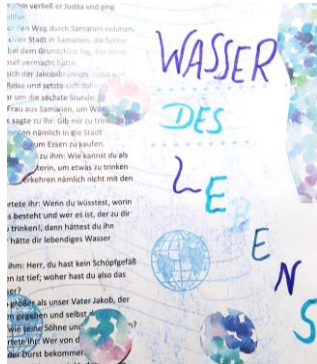 verließ er Judäa und ging
den Weg durch Samarien nehmen.
einer Stadt in Samarien, die Sychar
bei dem Grundstück lag, das Jakob
vermacht hatte.
sich der Jakobsbrunnen. Jesus war
Reise und setzte sich daher
war um die sechste Stunde.
Frau aus Samarien, um
s sagte zu ihr: Gib mir zu
nämlich in die Stadt
um Essen zu kaufen.
zu ihm: Wie kannst du als
um etwas zu trinken
verkehren nämlich nicht mit den
rtete ihr: Wenn du wüsstest, worin
s besteht und wer es ist, der zu dir
trinken!, dann hättest du ihn
hätte dir lebendiges Wasser
ihm: Herr, du hast kein Schöpfgefäß
en ist tief; woher hast du also das
er?
größer als unser Vater Jakob, der
en gegeben und selbst
wie seine Söhne und
rtete ihr: Wer von
der Durst bekommen
WASSER
DES
LEBENS